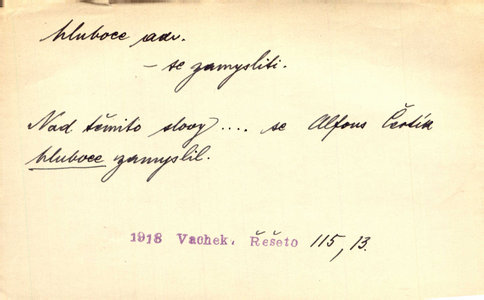 hluboce adv.
– se zamysliti.
Nad těmito slovy .... se Alfons Čertík
hluboce zamyslil.
1918 Vachek, Řešeto 115, 13.